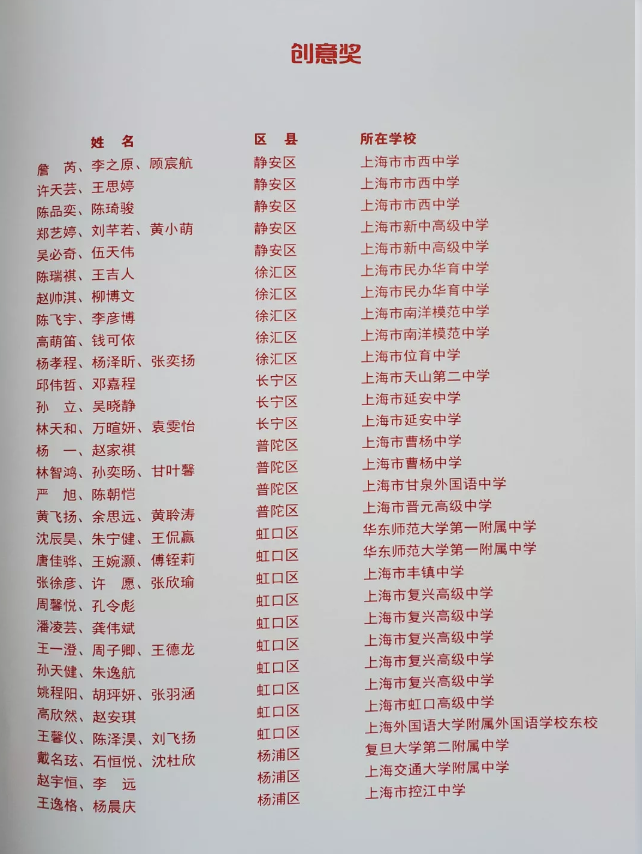 创意奖
姓 名 区 县 所在学校
詹 芮、李之原、顾宸航 静安区 上海市市西中学
许天芸、王思婷 静安区 上海市市西中学
陈品奕、陈琦骏 静安区 上海市市西中学
郑艺婷、刘芊若、黄小萌 静安区 上海市新中高级中学
吴必奇、伍天伟 静安区 上海市新中高级中学
陈瑞祺、王吉人 徐汇区 上海市民办华育中学
赵帅淇、柳博文 徐汇区 上海市民办华育中学
陈飞宇、李彦博 徐汇区 上海市南洋模范中学
高萌笛、钱可依 徐汇区 上海市南洋模范中学
杨孝程、杨泽昕、张奕扬 徐汇区 上海市位育中学
邱伟哲、邓嘉程 长宁区 上海市天山第二中学
孙 立、吴晓静 长宁区 上海市延安中学
林天和、万暄妍、袁雯怡 长宁区 上海市延安中学
杨 一、赵家祺 普陀区 上海市曹杨中学
林智鸿、孙奕旸、甘叶馨 普陀区 上海市曹杨中学
严 旭、陈朝恺 普陀区 上海市甘泉外国语中学
黄飞扬、余思远、黄聆涛 普陀区 上海市晋元高级中学
沈辰昊、朱宁健、王侃赢 虹口区 华东师范大学第一附属中学
唐佳骅、王婉灏、傅铚莉 虹口区 华东师范大学第一附属中学
张徐彦、许 愿、张欣瑜 虹口区 上海市丰镇中学
周馨悦、孔令彪 虹口区 上海市复兴高级中学
潘凌芸、龚伟斌 虹口区 上海市复兴高级中学
王一澄、周子卿、王德龙 虹口区 上海市复兴高级中学
孙天健、朱逸航 虹口区 上海市复兴高级中学
姚程阳、胡玶妍、张羽涵 虹口区 上海市复兴高级中学
高欣然、赵安琪 虹口区 上海市虹口高级中学
王馨仪、陈泽淏、刘飞扬 虹口区 上海外国语大学附属外国语学校东校
戴名玹、石恒悦、沈杜欣 杨浦区 复旦大学第二附属中学
赵宇恒、李 远 杨浦区 上海交通大学附属中学
王逸格、杨晨庆 杨浦区 上海市控江中学